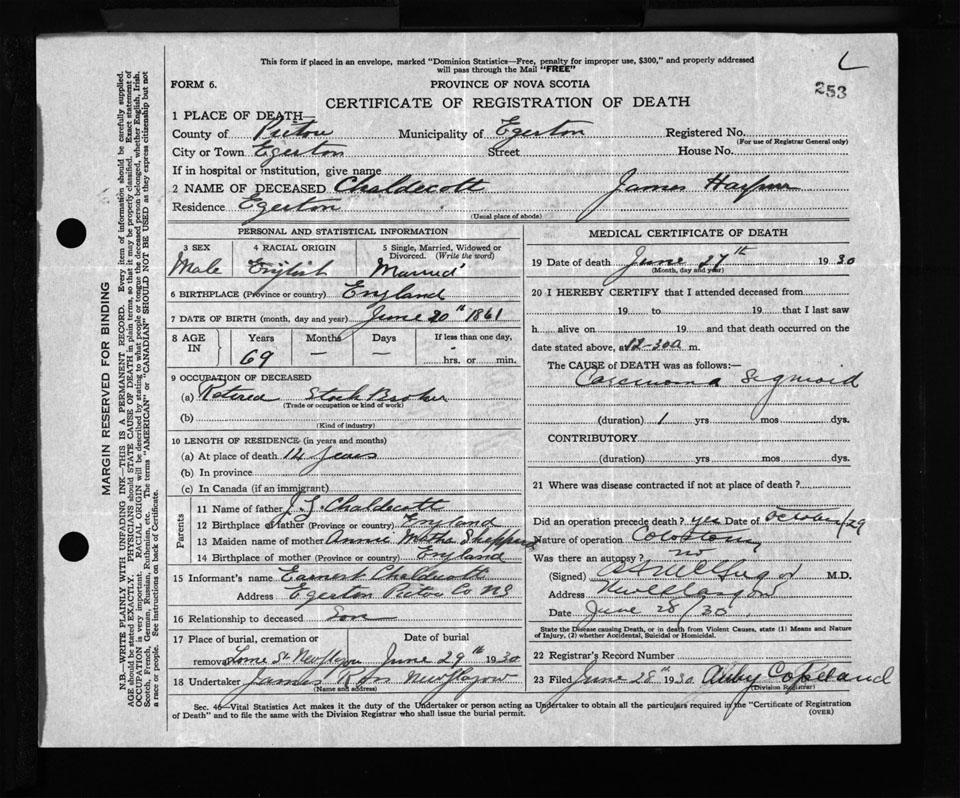 This form if placed in an envelope, marked "Dominion Statistics—Free, penalty for improper use, $300," and properly addressed
will pass through the Mail "FREE"
FORM 6.
PROVINCE OF NOVA SCOTIA
253
CERTIFICATE OF REGISTRATION OF DEATH
1 PLACE OF DEATH—
County of Pictou Municipality of Egerton Registered No.
(For use of Registrar General only)
City or Town Egerton Street House No.
If in hospital or institution, give name
2 NAME OF DECEASED Chaldecott James
Residence Egerton
(Usual place of abode)
PERSONAL AND STATISTICAL INFORMATION
3 SEX 4 RACIAL ORIGIN 5 Single, Married, Widowed or Divorced. (Write the word)
Male English Married
6 BIRTHPLACE (Province or country) England
7 DATE OF BIRTH (month, day and year) June 20th 1861
8 AGE IN Years Months Days If less than one day,
69 — — hrs. or min.
9 OCCUPATION OF DECEASED
(a) Retired Stock Broker
(Trade or occupation or kind of work)
(b)
(Kind of industry)
10 LENGTH OF RESIDENCE (in years and months)
(a) At place of death 14 years
(b) In province
(c) In Canada (if an immigrant)
Parents
11 Name of father J. Chaldecott
12 Birthplace of father (Province or country) England
13 Maiden name of mother Annie
14 Birthplace of mother (Province or country) England
15 Informant's name Earnest Chaldecott
Address Egerton Pictou Co NS
16 Relationship to deceased Son
17 Place of burial, cremation or removal Date of burial
Lorne St. New Glasgow June 29th 1930
18 Undertaker James Ross New Glasgow
(Name and address)
MEDICAL CERTIFICATE OF DEATH
19 Date of death June 27th 1930
(Month, day and year)
20 I HEREBY CERTIFY that I attended deceased from
19 to 19 that I last saw
h alive on 19 and that death occurred on
date stated above, at 12-30a m.
The CAUSE of DEATH was as follows:—
Carcinoma Sigmoid
(duration) 1 yrs mos dys.
CONTRIBUTORY
(duration) yrs mos dys.
21 Where was disease contracted if not at place of death?
Did an operation precede death? yes Date of October/29
Nature of operation Colostomy
Was there an autopsy? no
(Signed) M.D.
Address New Glasgow
Date June 28/30
State the Disease causing Death, or in death from Violent Causes, state (1) Means and Nature of Injury, (2) whether Accidental, Suicidal or Homicidal.
22 Registrar's Record Number
23 Filed June 28th 1930 Copeland
(Division Registrar)
Sec. 46—Vital Statistics Act makes it the duty of the Undertaker or person acting as Undertaker to obtain all the particulars required in the "Certificate of Registration
of Death" and to file the same with the Division Registrar who shall issue the burial permit.
(OVER)
MARGIN RESERVED FOR BINDING
N.B.—WRITE PLAINLY WITH UNFADING INK—THIS IS A PERMANENT RECORD. Every item of information should be carefully supplied.
AGE should be stated EXACTLY. PHYSICIANS should STATE CAUSE OF DEATH in plain terms, so that it may be properly classified. Exact statement of
OCCUPATION is very important. RACIAL ORIGIN will be described by stating to what people or tongue the deceased person belonged, whether English, Irish,
Scotch, French, German, Russian, Ruthenian, etc. The terms "AMERICAN" or "CANADIAN" SHOULD NOT BE USED as they express citizenship but not
a race or people. See instructions on back of Certificate.